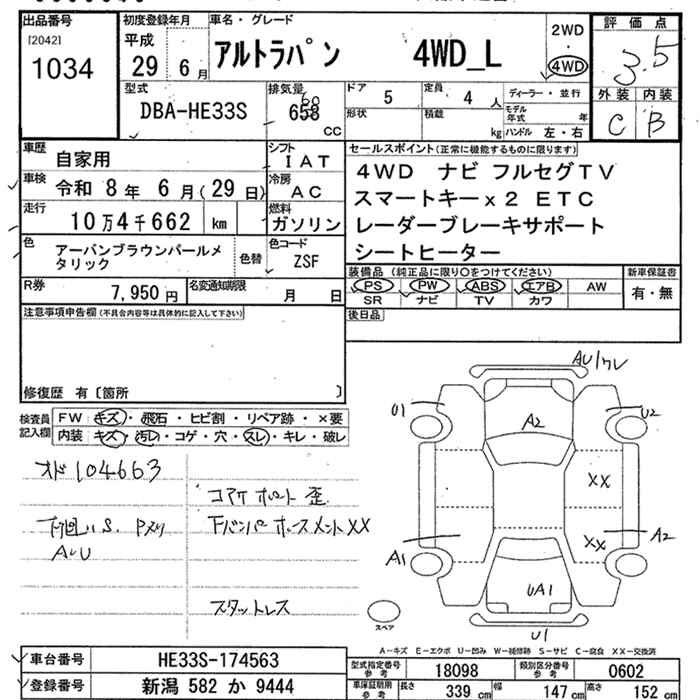 出品番号
[2042]
1034
初度登録年月
平成
29 6 月
車名・グレード
アルトラパン 4WD_L
2WD
・
4WD
評価点
3.5
外装 内装
C B
型式
DBA-HE33S
排気量
658
60
CC
ドア 5
定員 4 人
ディーラー・並行
形状
積載 kg
モデル年式 年
ハンドル 左・右
車歴
自家用
シフト
IAT
セールスポイント(正常に機能するものに限ります)
4WD ナビ フルセグTV
スマートキーx2 ETC
レーダーブレーキサポート
シートヒーター
車検
令和 8年 6月(29日)
冷房
AC
走行
10万4千662 km
燃料
ガソリン
色
アーバンブラウンパールメタリック
色替
色コード
ZSF
装備品(純正品に限り○をつけてください)
PS PW ABS エアB AW
SR ナビ TV カワ
新車保証書
有・無
R券
7,950 円
名変通知期限
月 日
後日品
注意事項申告欄(不具合内容等は具体的に記入して下さい)
修復歴 有〔箇所 〕
検査員記入欄
FW キズ・飛石・ヒビ割・リペア跡・×要
内装 キズ・汚れ・コゲ・穴・スレ・キレ・破レ
オド104663
コアサポート歪
下廻りS.
Fバンパーホースメント××
AUU
スタットレス
AU/ワレ
U1
U2
A2
××
××
A1
A2
UA1
U1
スペア
A-キズ E-エクボ U-凹み W-補修跡 S-サビ C-腐食 XX-交換済
車台番号
HE33S-174563
登録番号
新潟 582 か 9444
型式指定番号
参考
18098
類別区分番号
参考
0602
車庫証明用
参考
長さ 339 cm
幅 147 cm
高さ 152 cm